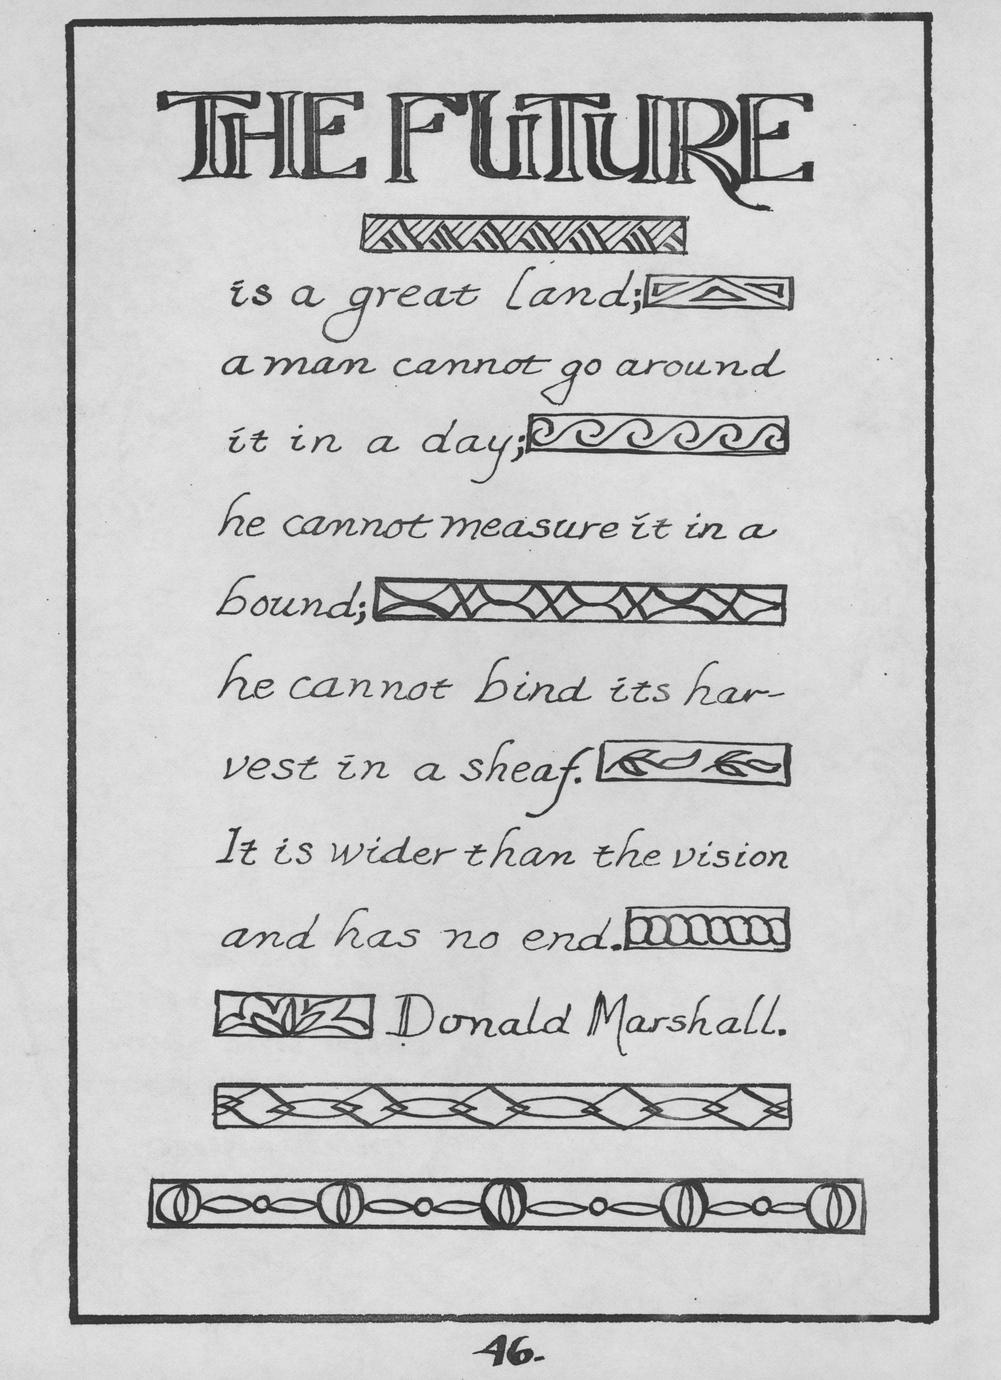 THE FUTURE
is a great land;
a man cannot go around
it in a day;
he cannot measure it in a
bound;
he cannot bind its har-
vest in a sheaf.
It is wider than the vision
and has no end.
Donald Marshall.
46.